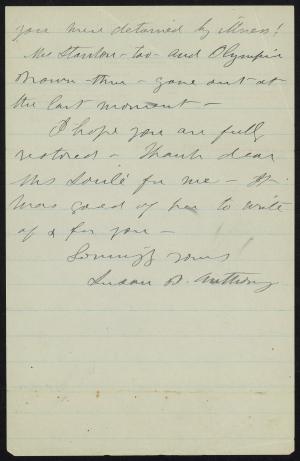 you were detained by illness!
Mrs Stanton - too - and Olympia
Brown - three - gave out at
the last moment -
I hope you are fully
restored - Thank dear
Mrs Soulé for me - It
was good of her to write
of & for you -
Lovingly yours
Susan B. Anthony